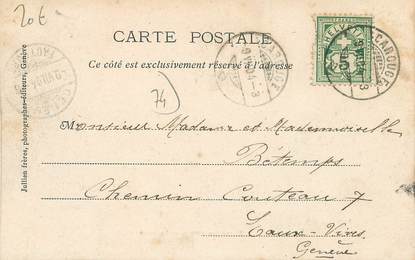 20€
CARTE POSTALE
Ce côté est exclusivement réservé à l'adresse
74
HELVETIA
5
CAROUGE
CAROUGE
Monsieur Madame et Mademoiselle
Bétemps
Chemin Couteau 7
Eaux-Vives
Genève
Jullien frères, photographes-éditeurs, Genève